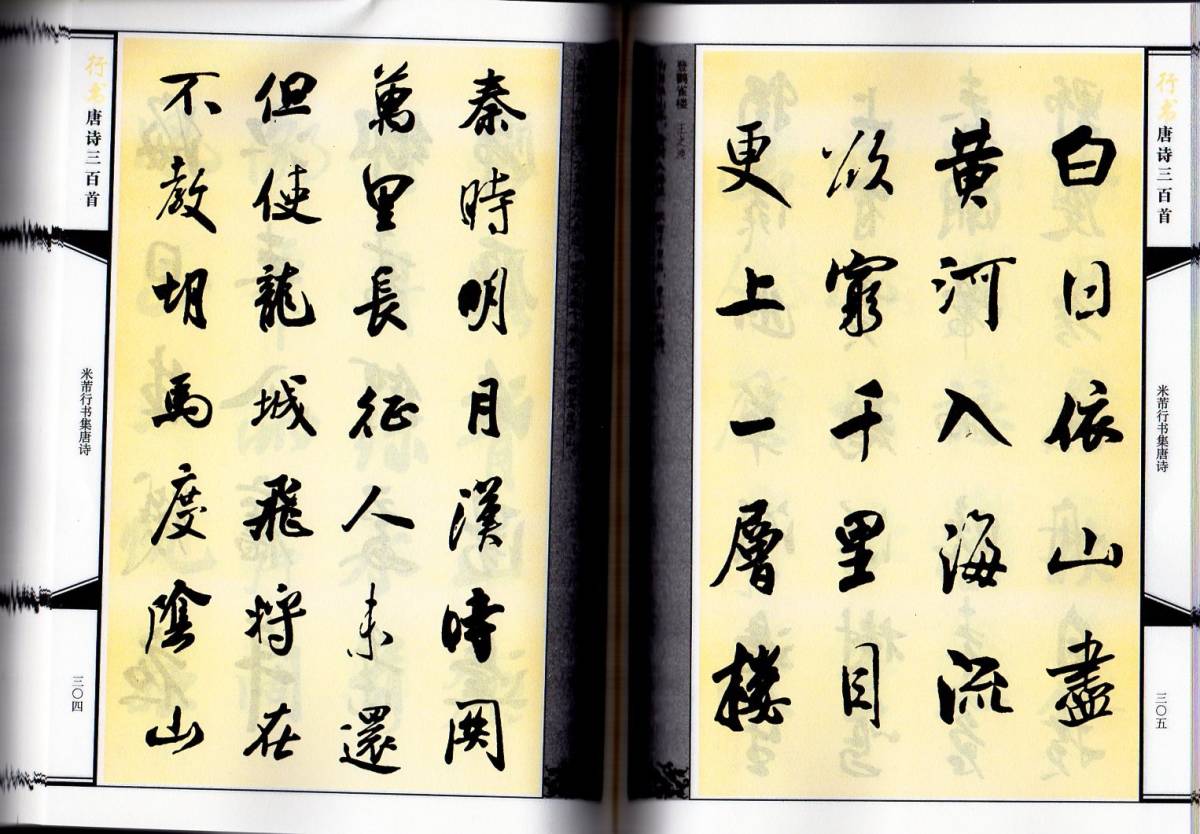 行书
唐诗三百首
米芾行书集唐诗
三〇五
白日依山盡
黄河入海流
欲窮千里目
更上一層樓
登鹳雀楼 王之涣
秦時明月漢時関
萬里長征人未還
但使龍城飛将在
不教胡馬度陰山
行书
唐诗三百首
米芾行书集唐诗
三〇四